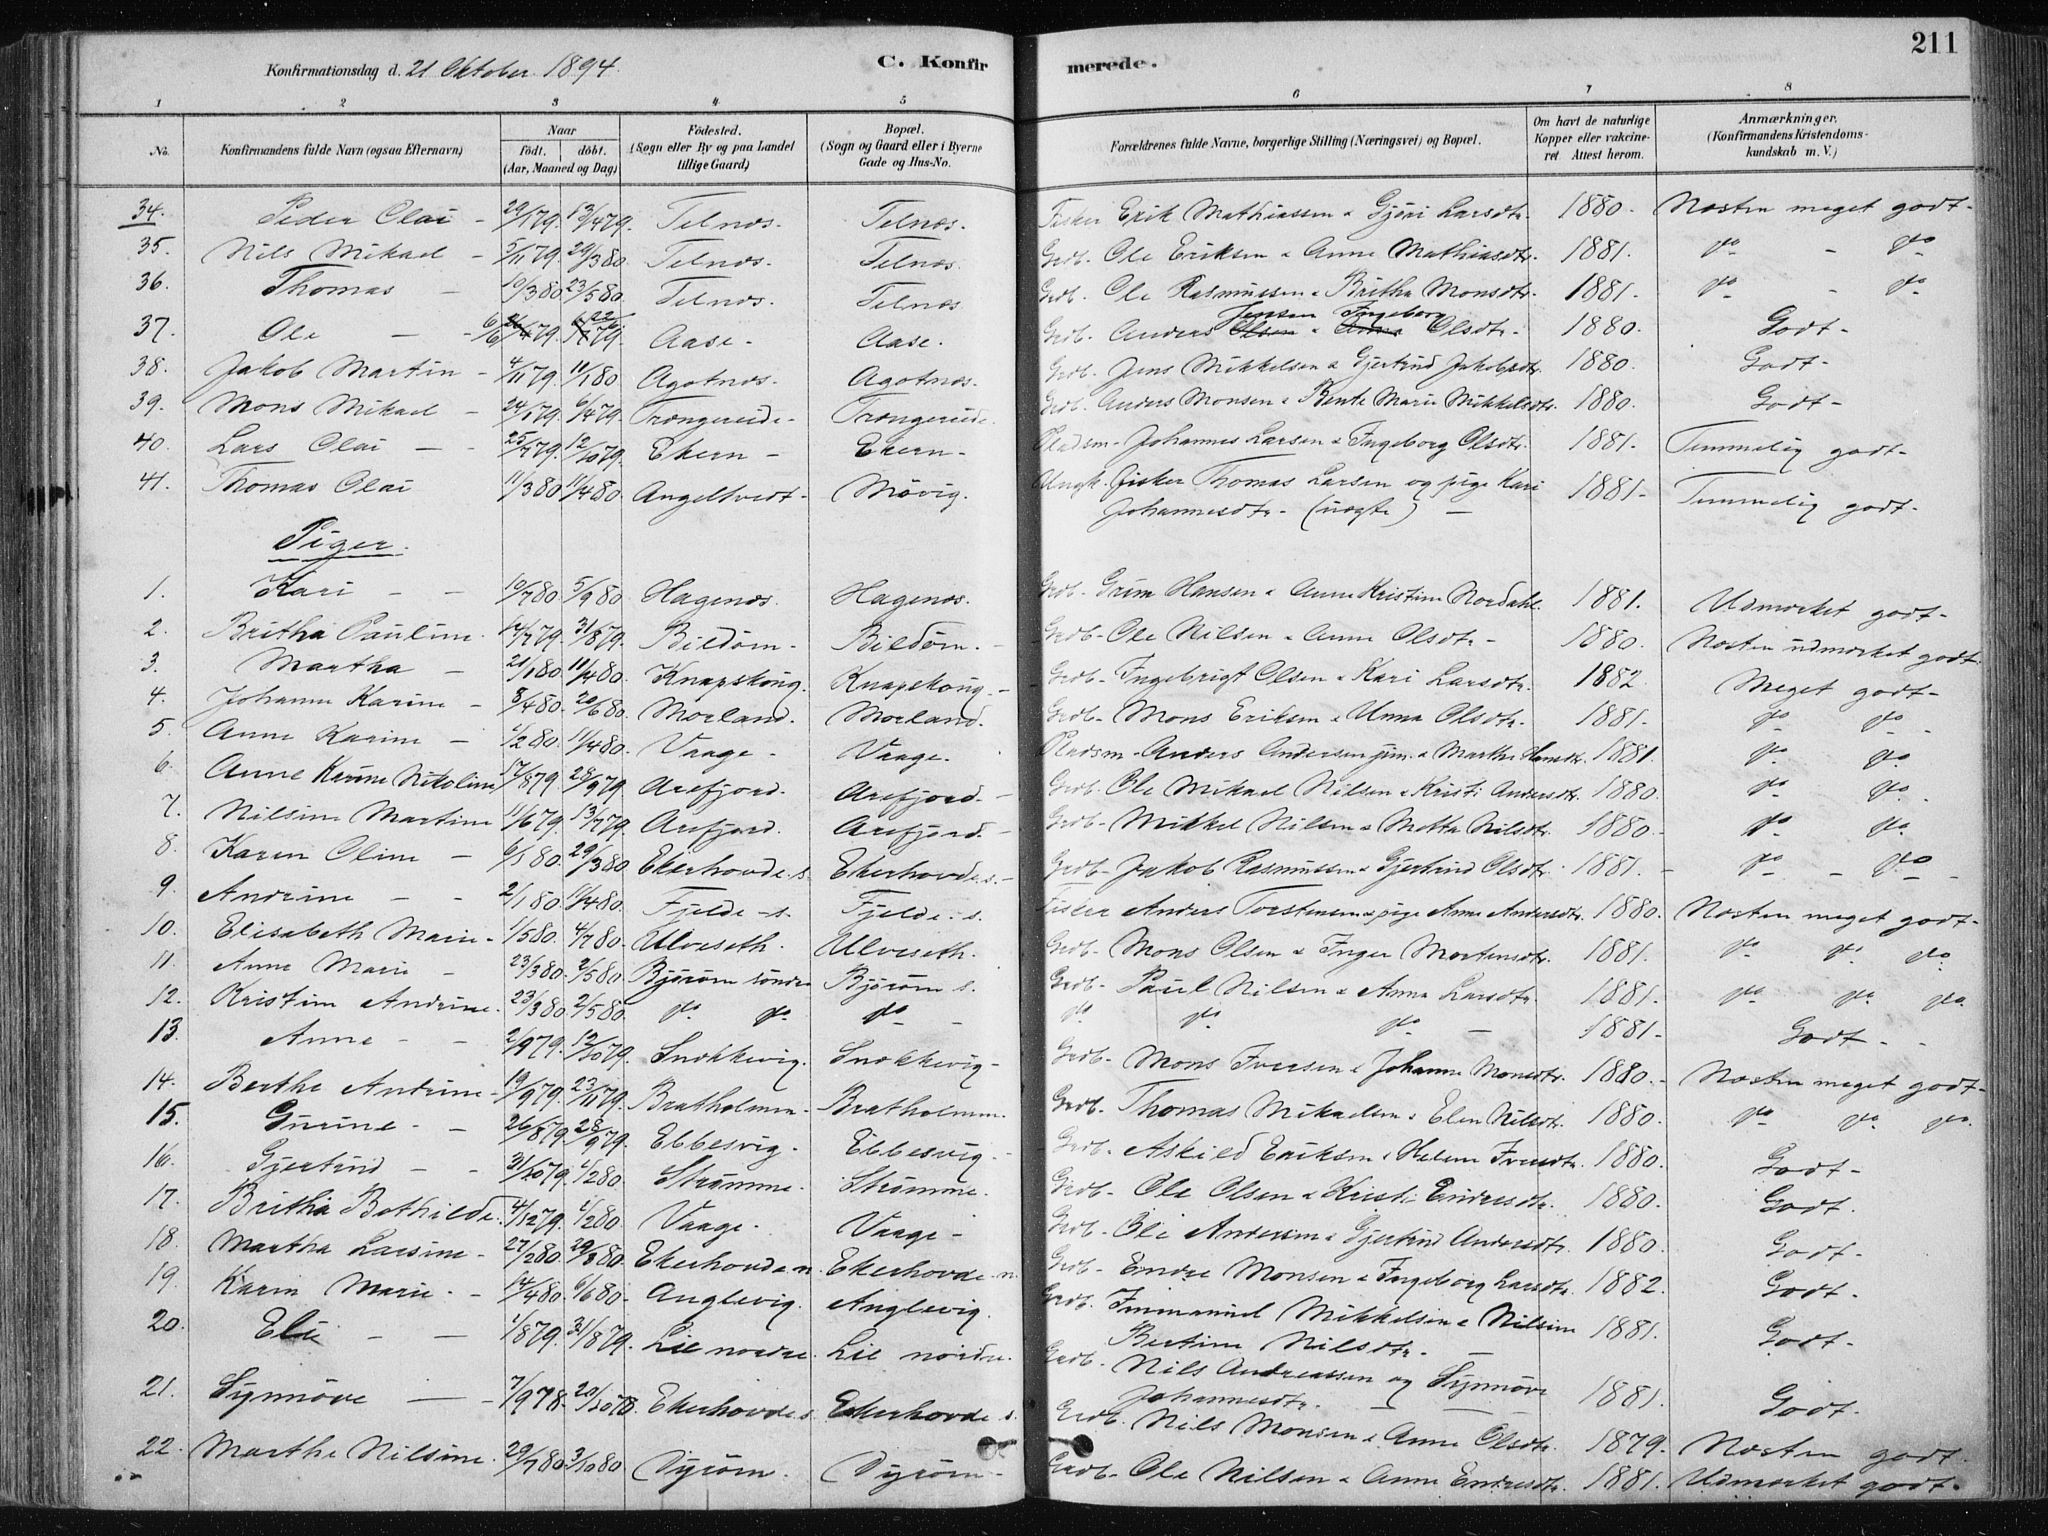 211
Konfirmationsdag d. 21 Oktober 1894. C. Konfirmerede.
1 2 3 4 5 6 7 8
No. Konfirmandens fulde Navn (ogsaa Efternavn) Naar Födt. döbt. (Aar, Maaned og Dag) Födested. (Sogn eller By og paa Landet tillige Gaard) Bopæl. (Sogn og Gaard eller i Byerne Gade og Hus-No. Forældrenes fulde Navne, borgerlige Stilling (Næringsvei) og Bopæl. Om havt de naturlige Kopper eller vakcineret Attest herom. Anmærkninger. (Konfirmandens Kristendomskundskab m. V.)
34. Peder Olai - 29/1 79. 13/4 79. Telnæs. Telnæs. Fisker Erik Mathiassen & Gjøri Larsdtr. 1880. Næsten meget godt-
35. Nils Mikael - 5/11 79. 29/3 80. Telnæs. Telnæs. Grdb. Ole Eriksen & Anne Mathiasdtr. 1881. do - do
36. Thomas - 10/3 80. 23/5 80. Telnæs. Telnæs Grdb. Ole Rasmussen & Britha Monsdtr. 1881. do - do
37. Ole - 6/6 79. 22/6 79. Aase. Aase. Grdb. Anders Jensen & Ingeborg Olsdtr. 1880. Godt-
38. Jakob Martin - 4/11 79. 11/1 80. Agotnæs. Agotnæs. Grdb. Jens Mikkelsen & Gjertrud Jakobsdtr. 1880. Godt-
39. Mons Mikael - 24/1 79. 6/4 79. Trængereide- Trængereide. Grdb. Anders Monsen & Bente Marie Mikkelsdtr. 1880. Godt-
40. Lars Olai - 25/7 79. 12/10 79. Ekern - Ekern- Pladsm- Johannes Larsen & Ingeborg Olsdtr. 1881. Temmelig godt-
41. Thomas Olai 11/3 80. 11/4 80. Angeltvedt- Møvig. Ungk. fisker Thomas Larsen og pige Kari Johannesdtr. (uægte) - 1881- Temmelig godt-
Piger.
1. Kari - - 10/7 80. 5/9 80. Hagenæs. Hagenæs. Grdb- Grim Hansen & Anne Kristine Nordahl. 1881. Udmærket godt-
2. Britha Pauline. 14/7 79. 31/8 79. Bildøen- Bildøen.- Grdb- Ole Nilsen & Anne Olsdtr- 1880. Næsten udmærket godt.
3. Martha - 21/1 80. 11/4 80. Knapskoug. Knapskoug.- Grdb- Ingebrigt Olsen & Kari Larsdtr. 1882 Meget godt-
4. Johanne Karine - 8/4 80. 20/6 80. Morland. Morland. Grdb- Mons Eriksen & Unna Olsdtr. 1881. do - do
5. Anne Karine - 1/2 80. 11/4 80. Vaage - Vaage. Pladsm- Anders Andersen jun. & Martha Hansdtr. 1881. do do.
6. Anne Karine Nikoline 17/8 79. 28/9 79. Arefjord. Arefjord.- Grdb- Ole Mikael Nilsen & Kristi Andersdtr. 1880. do do.
7. Nilsine Martine 11/6 79. 13/7 79. Arefjord. Arefjord.- Grdb- Mikkel Nilsen & Metta Nilsdtr. 1880.- do do.
8. Karen Oline - 6/1 80. 29/3 80. Ekerhovde.s. Ekerhovde.s.- Grdb- Jakob Rasmussen & Gjertrud Olsdtr. 1881.- do - do -
9 Andrine - - 2/1 80. 11/4 80. Fjelde-s. Fjelde-s. Fisker Anders Torstensen & pige Anne Andersdtr. 1880. Næsten meget godt-
10. Elisabeth Marie- 1/5 80. 4/7 80. Ulveseth. Ulveseth. Grdb- Mons Olsen & Inger Mortensdtr. 1881. do do. do.
11. Anne Marie - 23/3 80. 2/5 80. Bjorøen søndre Bjorøen s. Grdb- Paul Nilsen & Anna Larsdtr. 1881. do do. do.
12. Kristine Andrine. 23/3 80. 2/5 80. do. do. do - do. do. do - 1881- Godt- -
13. Anne - - 2/9 79. 12/10 79. Snekkevig. Snekkevig- Grdb- Mons Iversen & Johanne Monsdtr. 1880.- Næsten meget godt-
14. Berthe Andrine- 19/9 79. 23/11 79. Bratholmen- Bratholmen. Grdb- Thomas Mikaelsen & Elen Nilsdtr. 1880. do do. do.
15. Gurine - - 26/8 79. 28/9 79. Ebbesvig. Ebbesvig.- Grdb- Askild Eriksen & Helene Iversdtr. 1880. Godt-
16. Gjertrud - - 31/10 79. 1/2 80. Strømme. Strømme. Grdb- Ole Olsen & Kristi Endresdtr. 1880. Godt.
17. Britha Bothilde. 4/12 79. 1/2 80. Vaage. Vaage- Grdb- Ole Andersen & Gjertrud Andersdtr. 1880. Godt-
18. Martha Larsine- 27/2 80. 29/3 80. Ekerhovde n. Ekerhovde-n. Grdb- Endre Monsen & Ingeborg Larsdtr. 1882. Godt-
19. Karen Marie. - 14/4 80. 6/6 80. Anglevig. Anglevig. Grdb. Immanuel Mikkelsen & Nilsine Bertine Nilsdtr. - 1881. Godt-
20. Eli - - 1/8 79. 31/8 79. Lie nordre. Lie nordre. Grdb. Nils Andreassen og Synnøve Johannesdtr. - 1881. Godt-
21. Synnøve - 7/9 78. 20/10 78. Ekerhovde s. Ekerhovde s. Grdb. Nils Monsen & Anne Olsdtr. 1879. Næsten godt.
22. Marthe Nilsine. 29/7 80. 3/10 80. Dyrøen. Dyrøen- Grdb- Ole Nilsen & Anne Endresdtr. 1881. Udmærket godt.